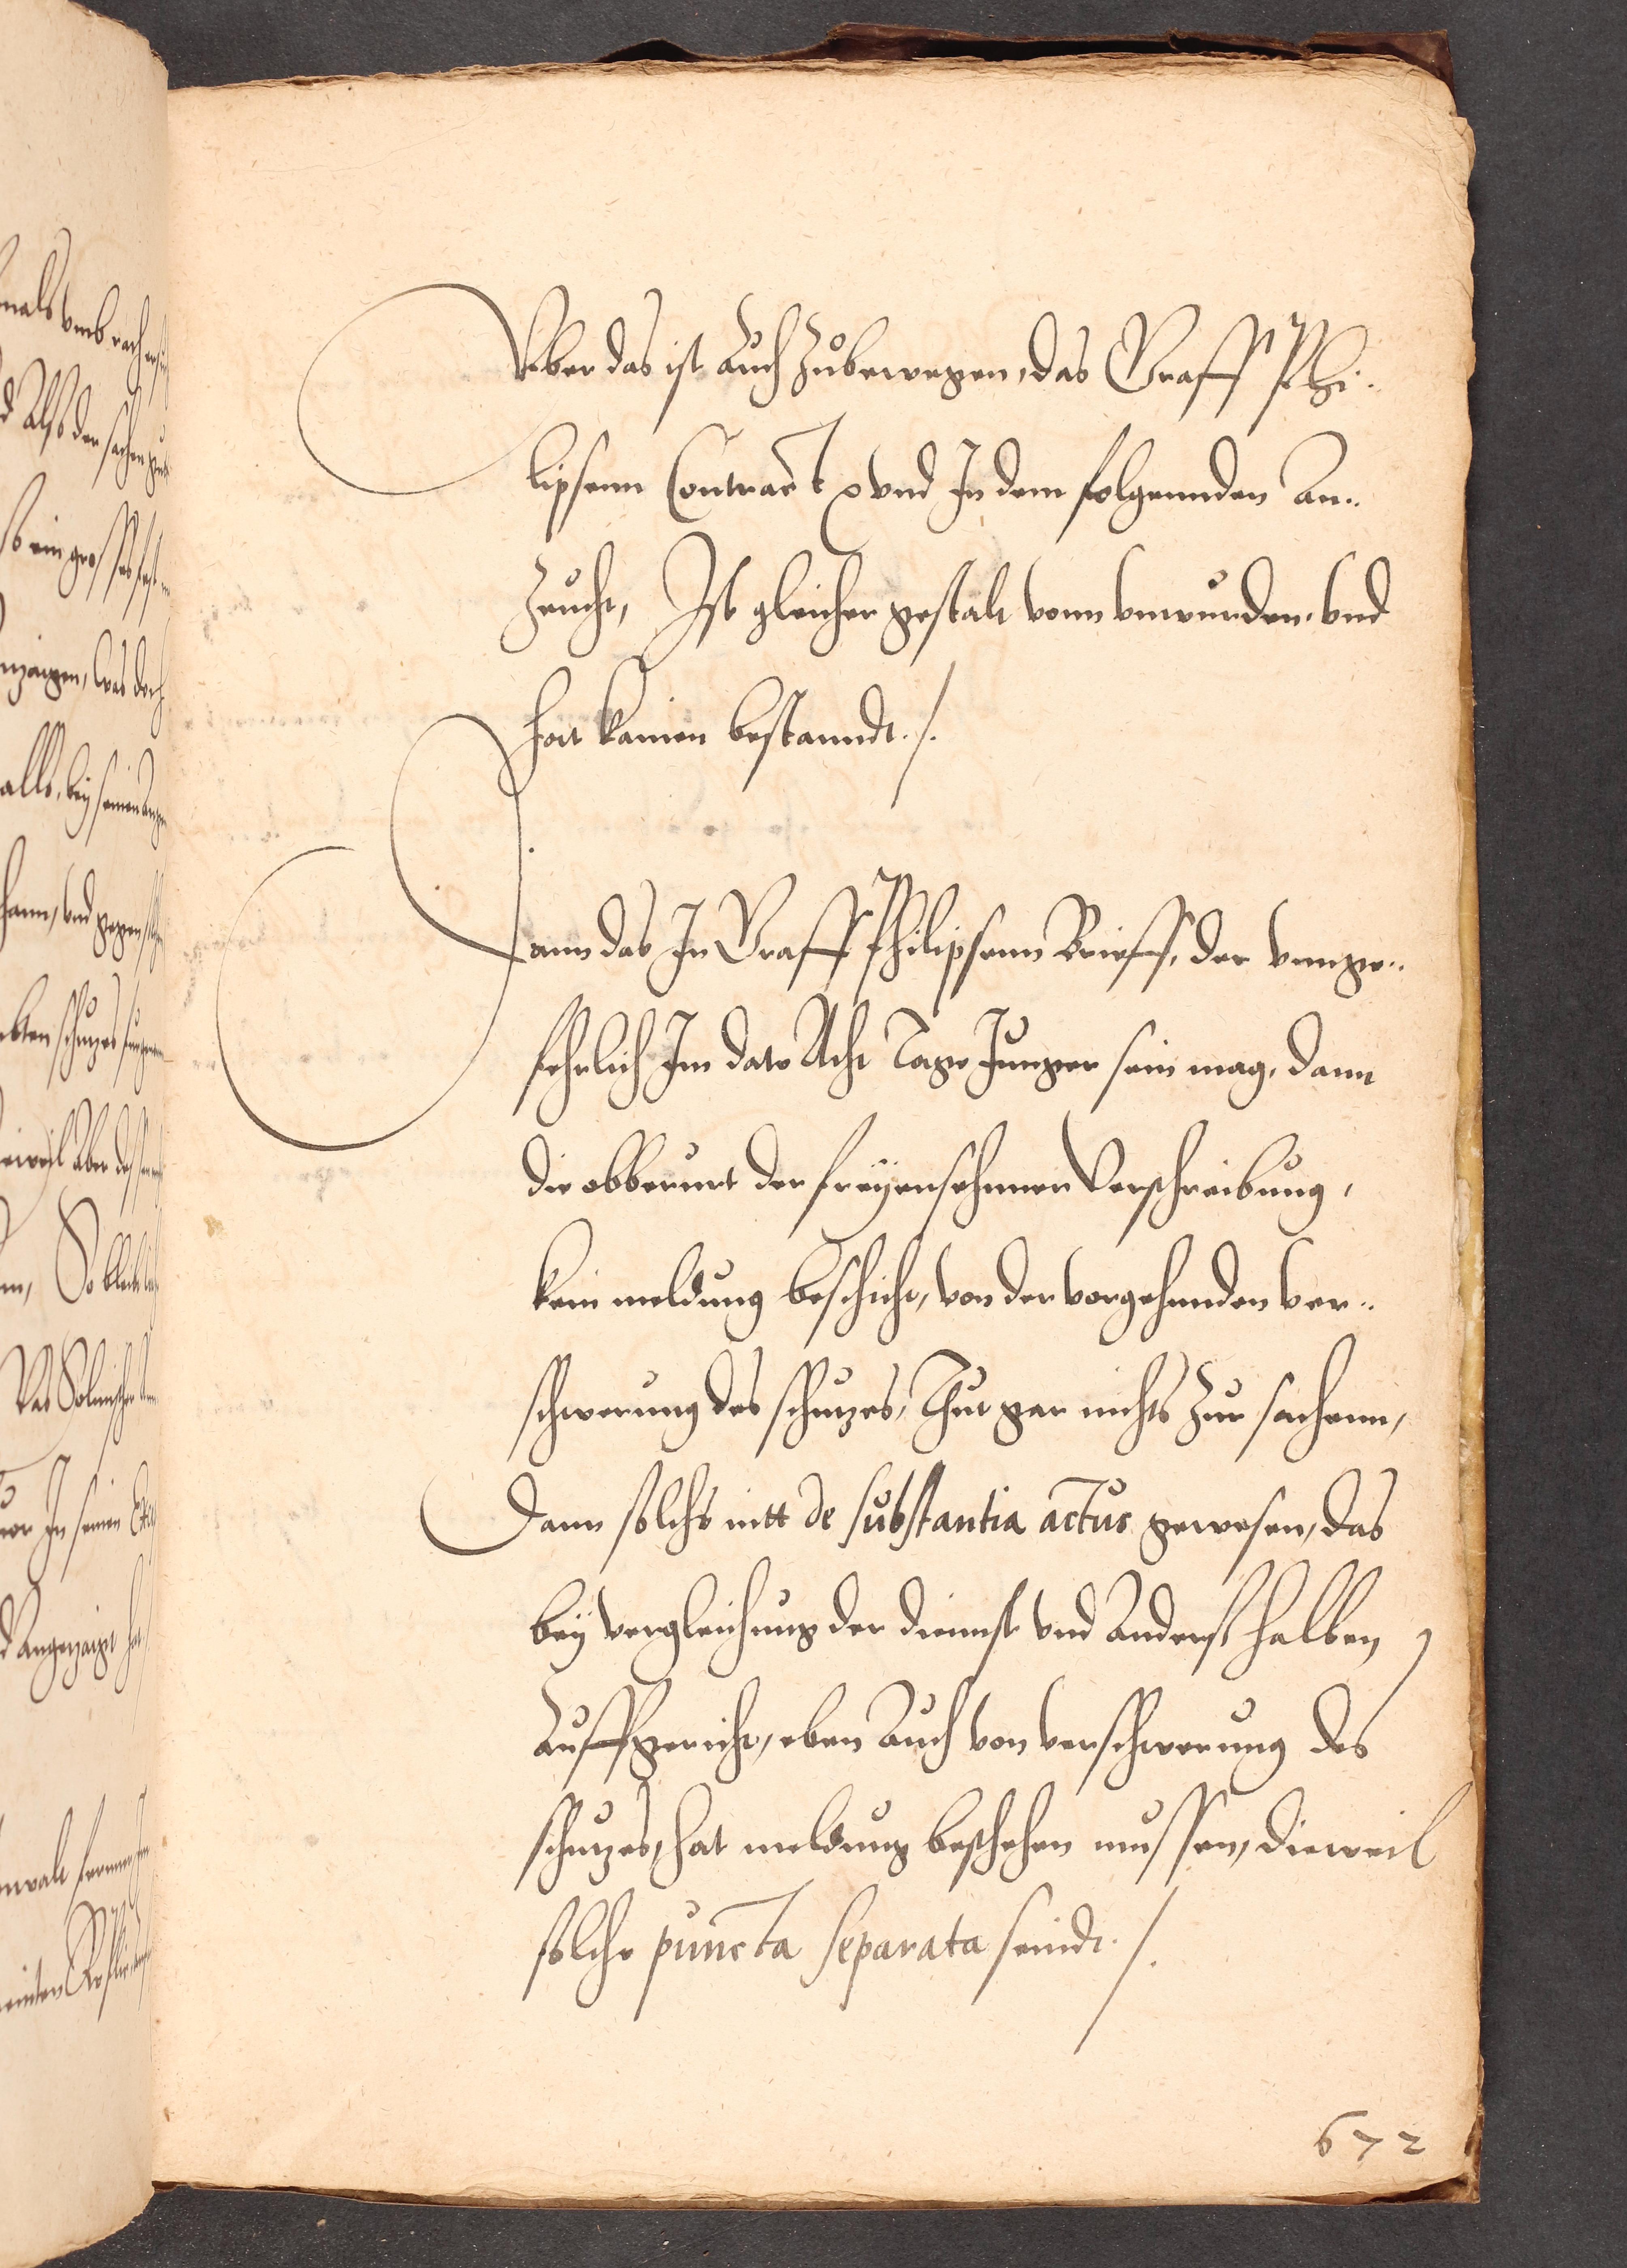 Vber das ist auch zubewegen, das Graff Phi-
lipsenn Contract x vnd In dem folgennden An-
zeucht, Ist gleicher gestalt vonn vnwurden, vnd
hat kainen bestanndt ./.
Dann das In Graff Philipsenn Brieff, der vnnge-
fehrlich Im dato Acht Tage Junger sein mag, dann
die obberurt der freyenseher Verschreibung,
kein meldung beschicht, von der vorgehenden ver-
schwerung des schutzes, Thut gar nichts zur sachenn,
Dann solchs nitt de substantia actus gewesen, das
bey vergleichung der dinnst vnd Anderst halben
Auffgericht, eben Auch von verschwerung des
schutzes, hat meldung beschehen mussen, dieweil
solche puncta separata seindt ./.
672